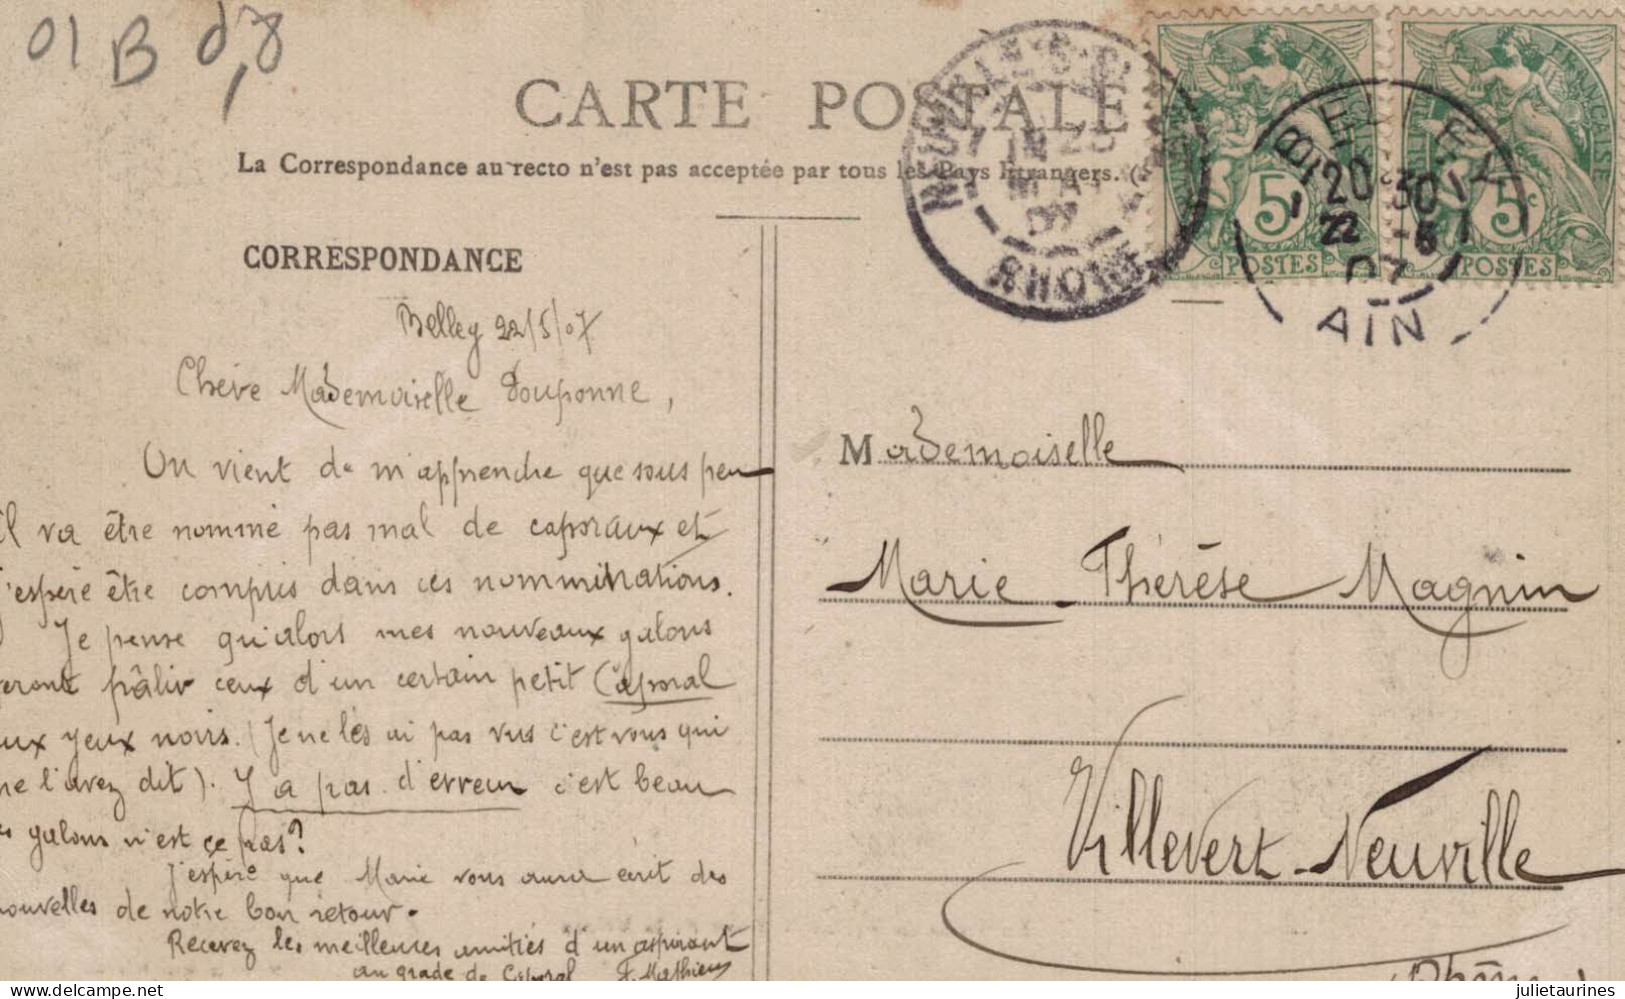 01 B d,8
CARTE POSTALE
La Correspondance au recto n'est pas acceptée par tous les Pays Etrangers.
NEUVILLE-S-S
MAI
07
RHONE
RÉPUBLIQUE FRANÇAISE
5c
POSTES
FRANÇAISE
5c
POSTES
BELLEY
20 30
22 -5
07
AIN
CORRESPONDANCE
Belley 22/5/07
Chère Mademoiselle Pouponne,
On vient de m'apprendre que sous peu
il va être nommé pas mal de caporaux et
j'espère être compris dans ces nomminations.
Je pense qu'alors mes nouveaux galons
feront pâlir ceux d'un certain petit Caporal
aux yeux noirs. (Je ne les ai pas vus c'est vous qui
me l'avez dit). Y a pas d'erreur c'est beau
les galons n'est ce pas?
J'espère que Marie vous aura écrit des
nouvelles de notre bon retour.
Recevez les meilleures amitiés d'un aspirant
au grade de Caporal F. Mathieu
Mademoiselle
Marie-Thérèse Magnin
Villevert-Neuville
(Rhône)
julietaurines